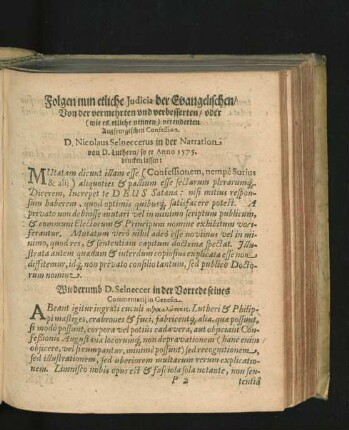 Folgen nun etliche Judicia der Evangelischen/
Von der vermehrten vnd verbesserten / oder
(wie es etliche nennen) veränderten
Augspurgischen Confession.
D. Nicolaus Selneccerus in der Narration
von D. Luthero / so er Anno 1575.
drucken lassen:
MUtatam dicunt illam esse (Confessionem, nempè Surius
& alij) aliquoties & pallium esse sectarum plerarumq́.
Dicerem, increpet te DEUS Satana: nisi mitius respon-
sum haberem, quod optimis quibusq́; satisfacere potest. A
privato non debuisse mutari vel in minimo scriptum publicum,
& communi Electorum & Principum nomine exhibitum vocife-
rantur. Mutatum verò nihil adeò esse novimus vel in mi-
nimo, quod res, & sententiam capitum doctrinæ spectat. Illu-
strata autem quædam & interdum copiosius explicata esse non
diffitemur, idq́; non privato consilio tantum, sed publico Docto-
rum nomine.
Widerumb D. Selneccer in der Vorrede seines
Commentarij in Genesin.
ABeant igitur ingrati cuculi Lutheri & Philip-
pi mastiges, crabrones & fuci, fabricentq́; alia, quæ possunt,
si modo possunt, corpora vel potius cadavera, aut objiciant Con-
fessionis Augustanæ locorumq́; non depravationem (hanc enim
objicere, vel si rumpantur, minimè possunt) sed recognitionem,
sed illustrationem, sed uberiorem multarum rerum explicatio-
nem. Limnisco nobis opus est & fasciola sola notante, non sen-
P 2 tentiã